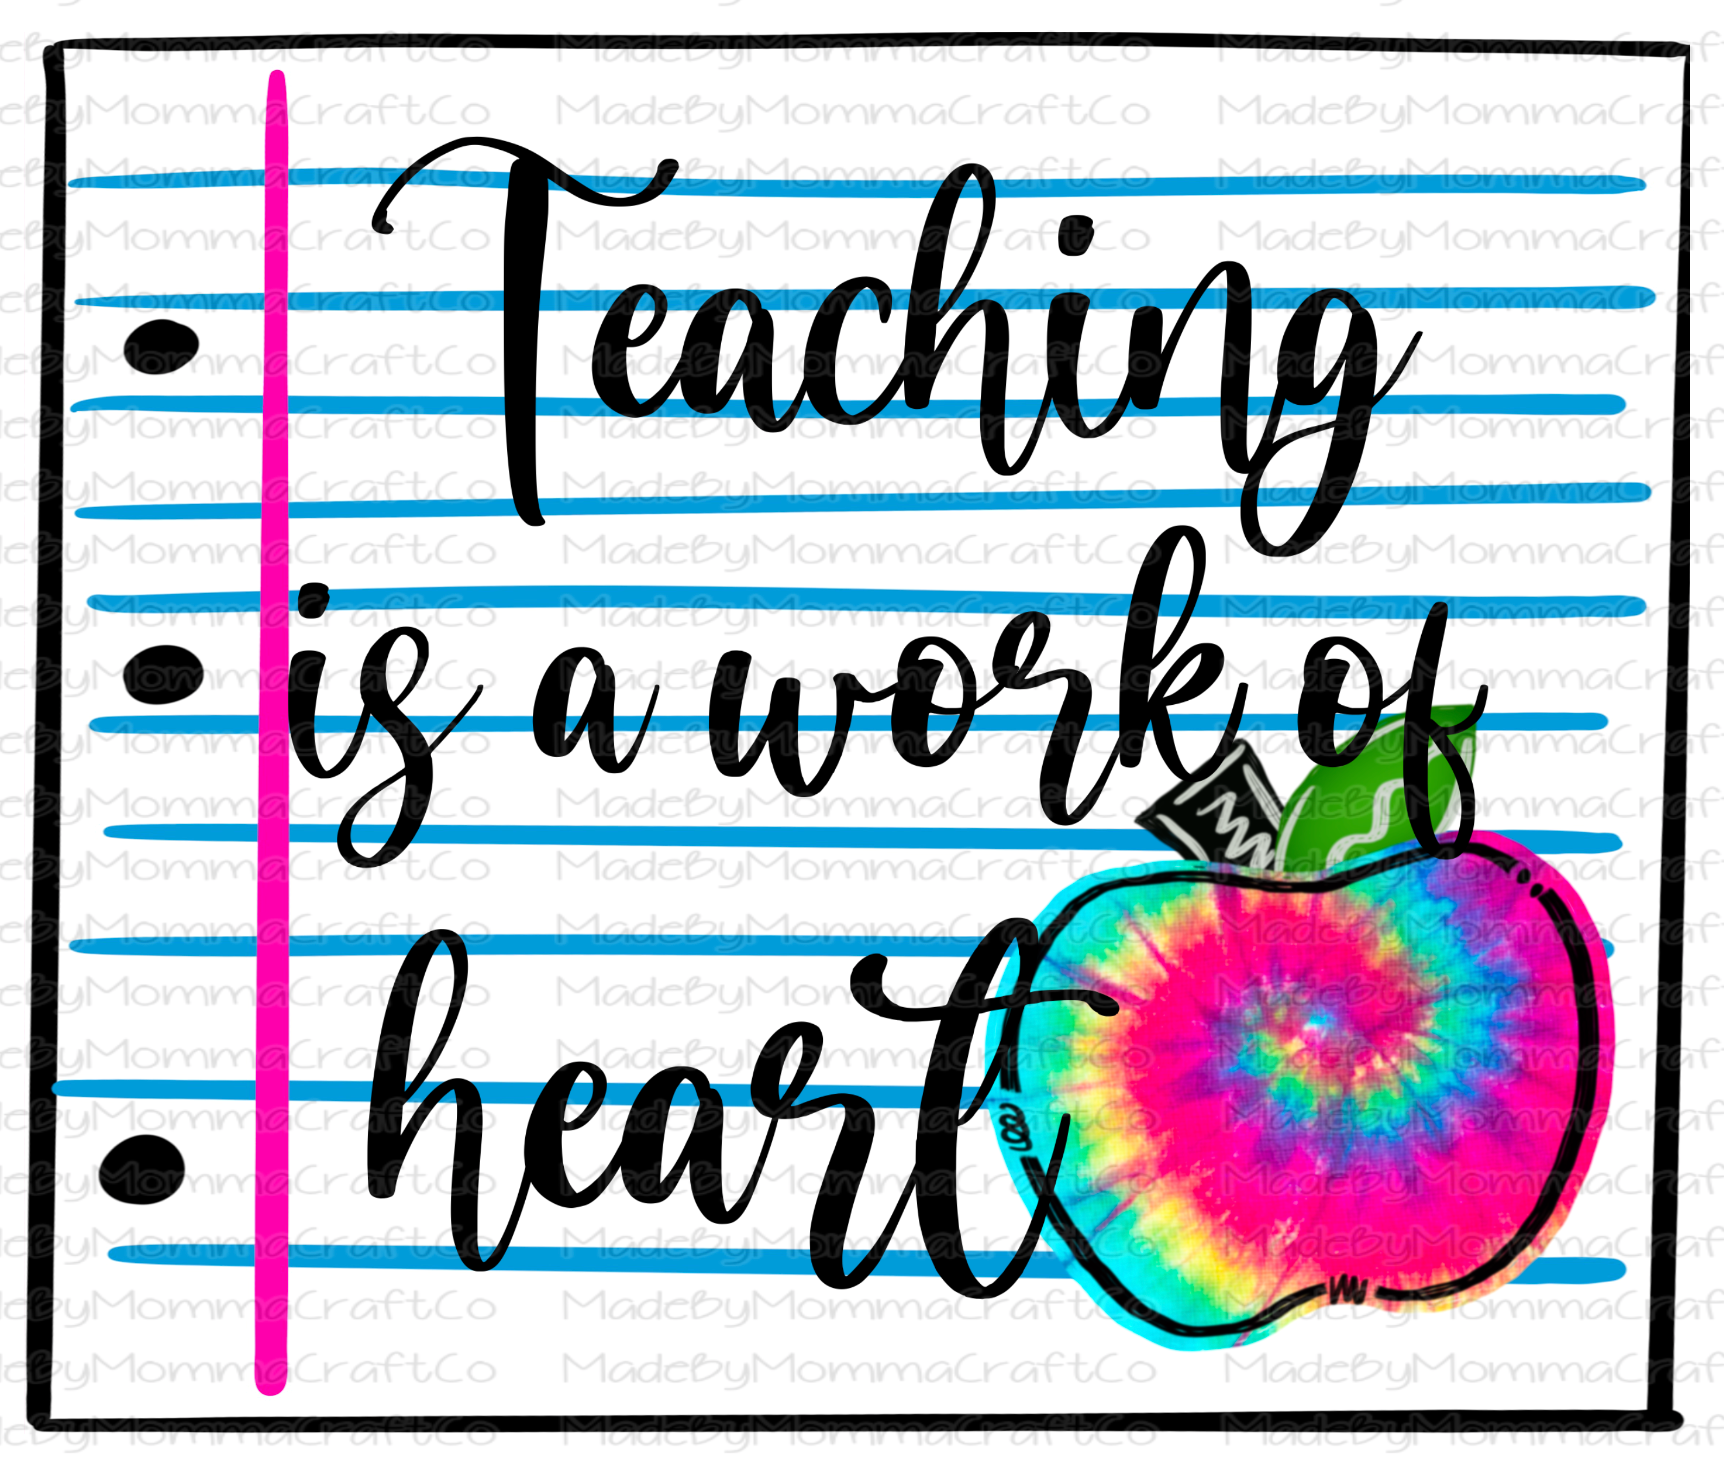 Teaching
is a work of
heart
MadeByMommaCraftCo